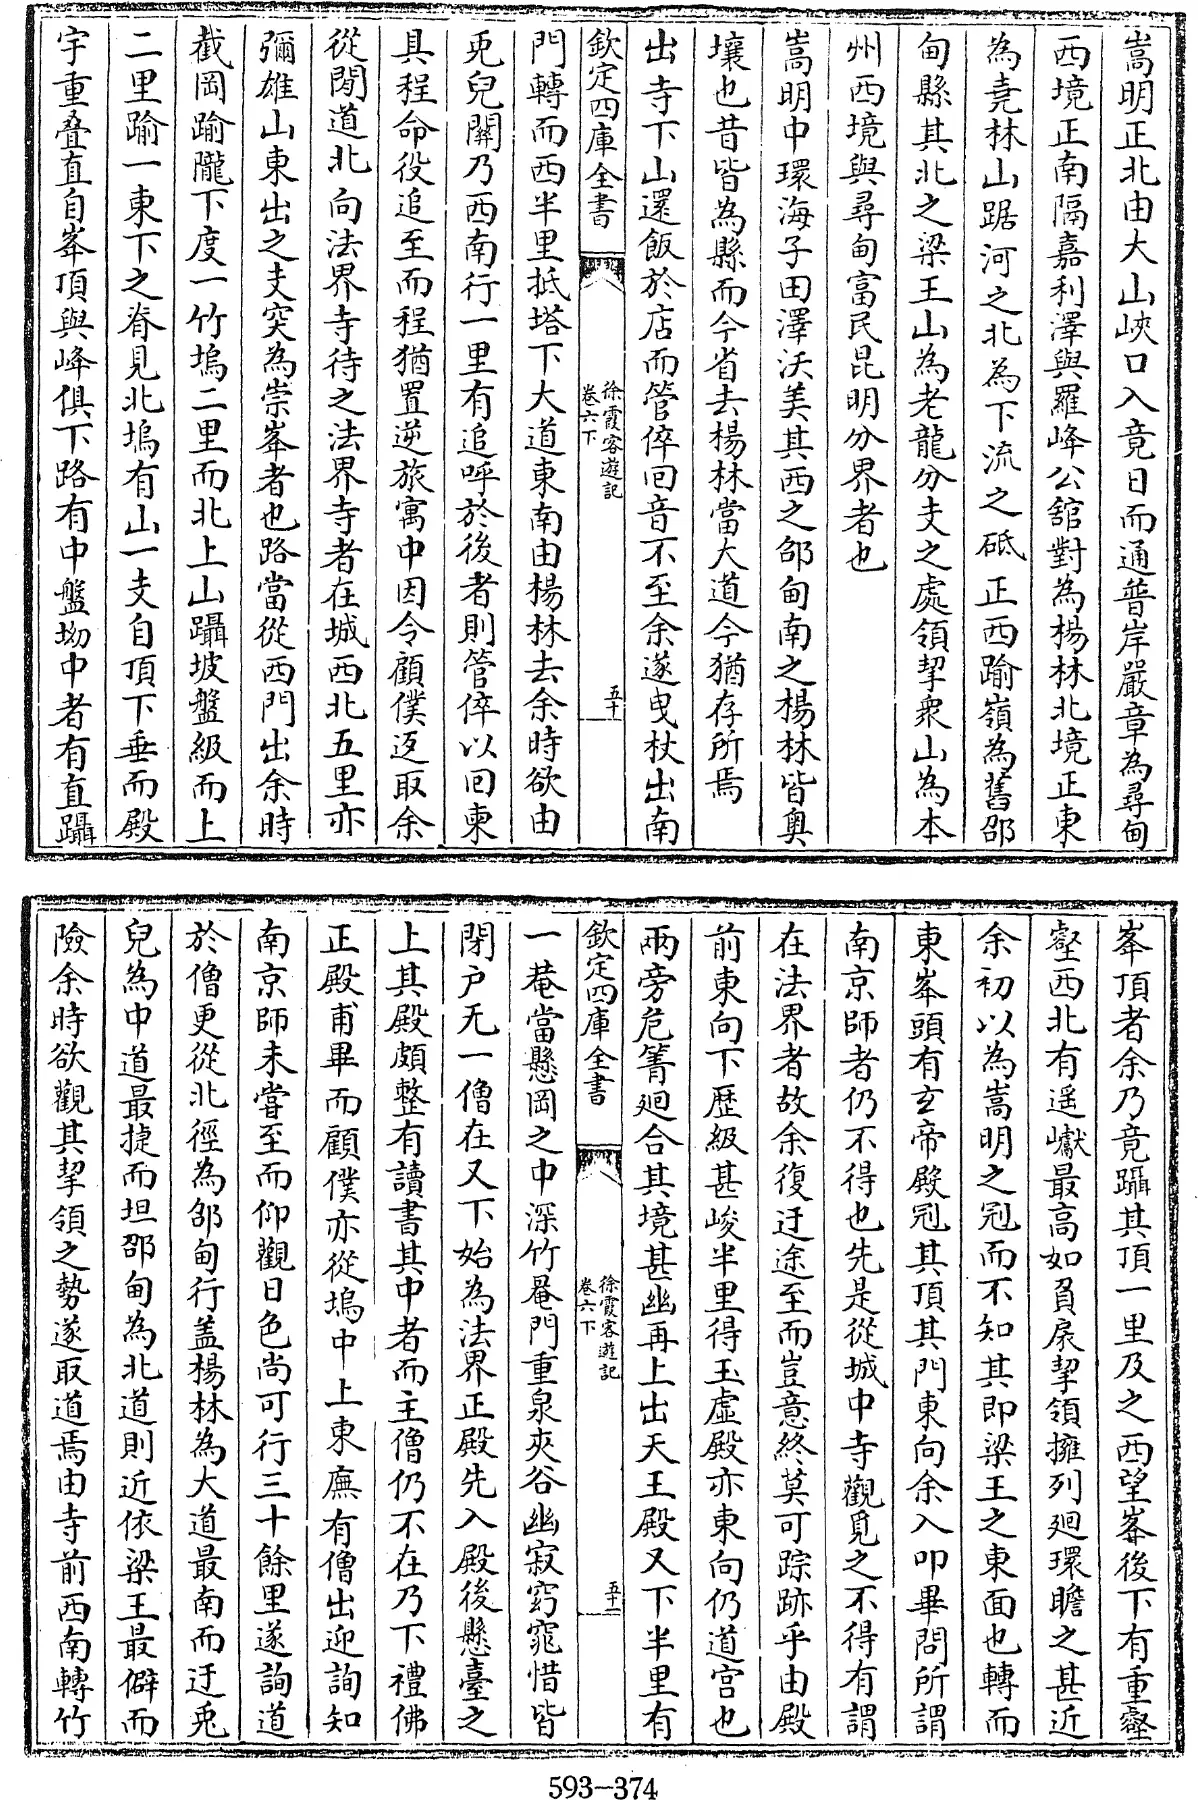 嵩明正北由大山峽口入竟日而通普岸嚴章為尋甸
西境正南隔嘉利澤與羅峰公舘對為楊林北境正東
為堯林山踞河之北為下流之砥正西踰嶺為舊邵
甸縣其北之梁王山為老龍分支之處領挈衆山為本
州西境與尋甸富民昆明分界者也
嵩明中環海子田澤沃美其西之邵甸南之楊林皆奥
壤也昔皆為縣而今省去楊林當大道今猶存所焉
出寺下山還飯於店而管倅囘音不至余遂曳杖出南
欽定四庫全書
徐霞客遊記
卷六下
五十
門轉而西半里抵塔下大道東南由楊林去余時欲由
兎兒關乃西南行一里有追呼於後者則管倅以囘柬
具程命役追至而程猶置逆旅寓中因令顧僕返取余
從間道北向法界寺待之法界寺者在城西北五里亦
彌雄山東出之支突為崇峯者也路當從西門出余時
截岡踰隴下度一竹塢二里而北上山躡坡盤級而上
二里踰一東下之脊見北塢有山一支自頂下垂而殿
宇重叠直自峯頂與峰俱下路有中盤坳中者有直躡
峯頂者余乃竟躡其頂一里及之西望峯後下有重壑
壑西北有遥巘最高如負扆挈領擁列廻環瞻之甚近
余初以為嵩明之冠而不知其即梁王之東面也轉而
東峯頭有玄帝殿冠其頂其門東向余入叩畢問所謂
南京師者仍不得也先是從城中寺觀覓之不得有謂
在法界者故余復迂途至而豈意終莫可踪跡乎由殿
前東向下歴級甚峻半里得玉虛殿亦東向仍道宫也
兩旁危箐廻合其境甚幽再上出天王殿又下半里有
欽定四庫全書
徐霞客遊記
卷六下
五十一
一菴當懸岡之中深竹罨門重泉夾谷幽寂窈窕惜皆
閉户无一僧在又下始為法界正殿先入殿後懸臺之
上其殿頗整有讀書其中者而主僧仍不在乃下禮佛
正殿甫畢而顧僕亦從塢中上東廡有僧出迎詢知
南京師未嘗至而仰觀日色尚可行三十餘里遂詢道
於僧更從北徑為邵甸行盖楊林為大道最南而迂兎
兒為中道最捷而坦邵甸為北道則近依梁王最僻而
險余時欲觀其挈領之勢遂取道焉由寺前西南轉竹
593-374